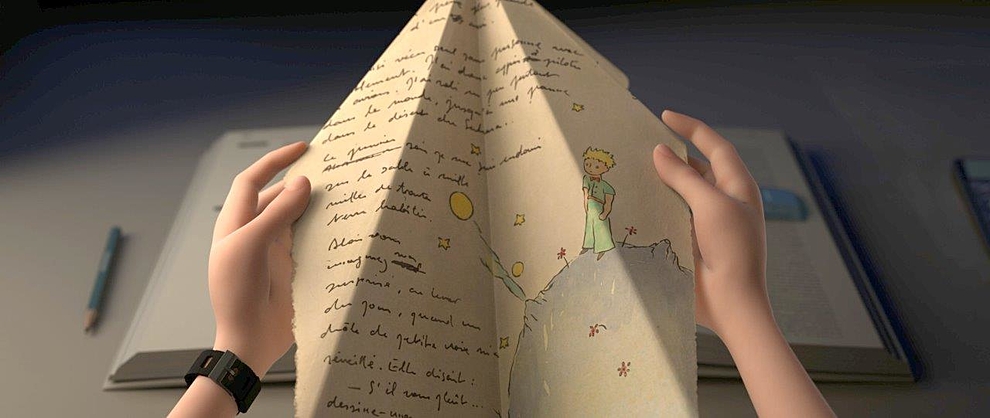 vécu seul sans personne avec
J'ai donc appris à piloter
avions. J'ai volé un peu partout
dans le monde, jusqu'à une panne
dans le désert du Sahara.
Le premier soir je me suis endormi
sur le sable à mille
milles de toute
terre habitée.
Alors vous
imaginez
surprise, au lever
du jour, quand un
drôle de petite voix m'a
réveillé. Elle disait :
— S'il vous plaît...
dessine-moi